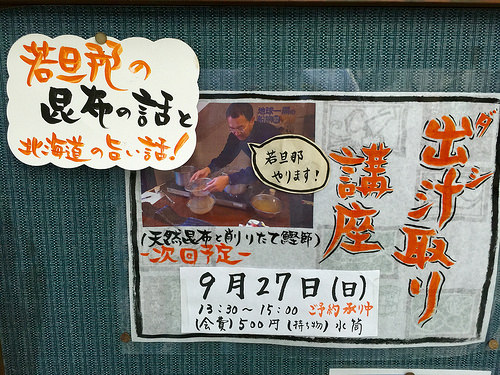 若旦那の
昆布の話と
北海道の旨い話!
出汁取り
ダシ
講座
若旦那
やります!
(天然昆布と削りたて鰹節)
-次回予定-
9月27日(日)
13:30~15:00 ご予約承り中
(会費)500円(持ち物)水筒